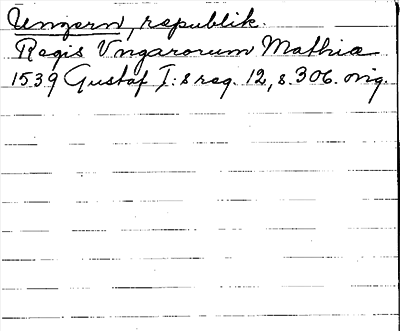 Ungern, republik.
Regis Vngarorum Mathiae
1539 Gustaf I:s reg. 12, s. 306. orig.